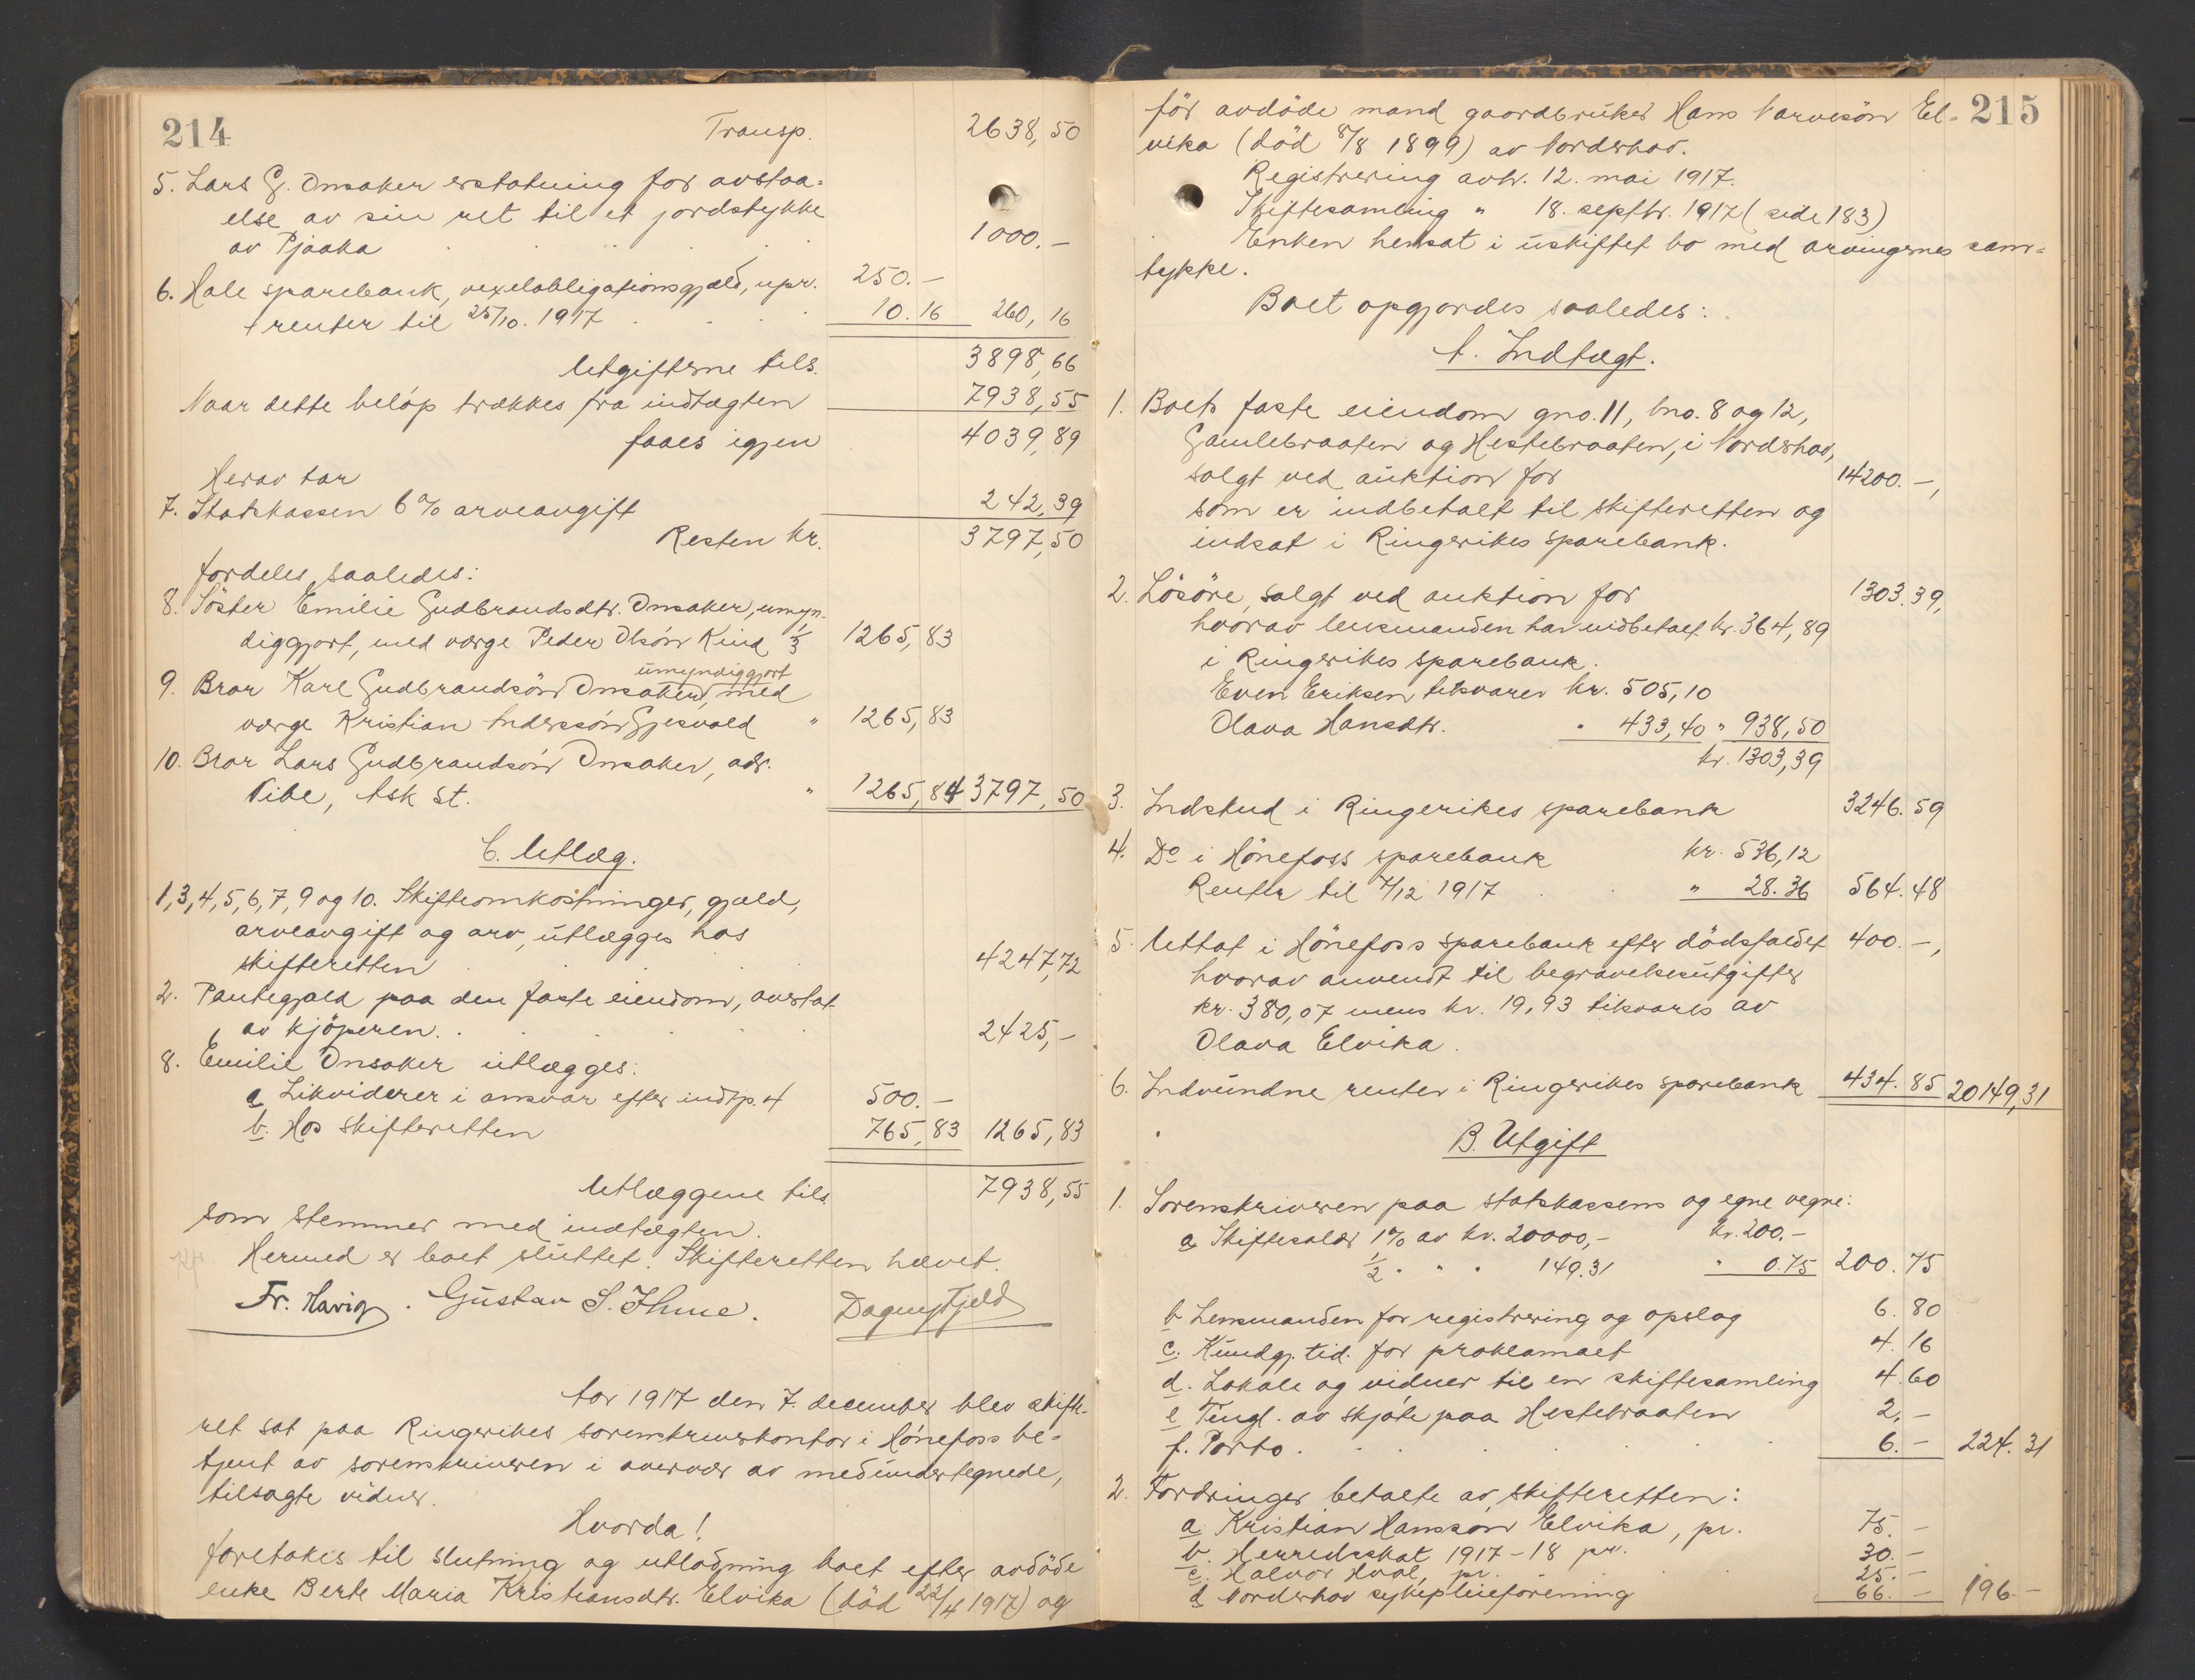 214
Transp. 2638,50
5. Lars G. Onsaker erstatning for avstaa-
else av sin ret til et jordstykke
av Pjaaka 1000.-
6. Hole sparebank, vexelobligationsgjæld, opr. 250.-
+ renter til 25/10. 1917 10.16 260,16
Utgifterne tils. 3898,66
Naar dette beløp trækkes fra indtægten 7938,55
faaes igjen 4039,89
Herav tar
7. Statskassen 6% arveavgift 242,39
Resten kr. 3797,50
fordeles saaledes:
8. Söster Emilie Gudbrandsdtr. Onsaker, umyn-
diggjort, med værge Peder Olsön Kind, 1/3 1265,83
umyndiggjort
9. Bror Karl Gudbrandsön Onsaker, med
værge Kristian Anderssön Gjesvold " 1265,83
10. Bror Lars Gudbrandsön Onsaker, adr.
Vibe, Ask St. " 1265,84 3797,50
C. Utlæg.
1,3,4,5,6,7,9 og 10. Skifteomkostninger, gjæld,
arveavgift og arv, utlægges hos
skifteretten 4247,72
2. Pantegjæld paa den faste eiendom, overtat
av kjöperen. 2425,-
8. Emilie Onsaker utlægges:
a Likviderer i ansvar efter indtp. 4 500.-
b. Hos skifteretten 765,83 1265,83
Utlæggene tils. 7938,55
som stemmer med indtægten.
Hermed er boet sluttet. Skifteretten hævet.
Fr. Havig. Gustav S. Ihme. Dagny Fjeld
Aar 1917 den 7. december blev skifte-
ret sat paa Ringerikes sorenskriverkontor i Hönefoss be-
tjent av sorenskriveren i overvær av medundertegnede,
tilsagte vidner.
Hvorda!
foretokes til slutning og utlodning boet efter avdöde
enke Berte Maria Kristiansdtr. Elvika (död 22/4 1917) og
215
för avdöde mand gaardbruker Hans Narvesön El-
vika (död 8/8 1899) av Norderhov.
Registrering avh. 12. mai 1917.
Skiftesamling " 18. septbr. 1917 (side 183)
Enken hensat i uskiftet bo med arvingernes sam-
tykke.
Boet opgjordes saaledes:
A. Indtægt.
1. Boets faste eiendom gno. 11, bno. 8 og 12,
Gamlebraaten og Hestebraaten, i Norderhov,
solgt ved auktion for 14200.-,
som er indbetalt til skifteretten og
indsat i Ringerikes sparebank.
2. Lösöre, solgt ved auktion for 1303.39,
hvorav lensmanden har indbetalt kr. 364,89
i Ringerikes sparebank.
Even Eriksen tilsvarer kr. 505,10
Olava Hansdtr. " 433,40 " 938,50
kr. 1303,39
3. Indskud i Ringerikes sparebank 3246.59
4. Do i Hönefoss sparebank kr. 536,12
Renter til 7/12 1917 " 28.36 564.48
5. Uttat i Hönefoss sparebank efter dödsfaldet 400.-,
hvorav anvendt til begravelsesutgifter
kr. 380,07 mens kr. 19,93 tilsvares av
Olava Elvika.
6. Indvundne renter i Ringerikes sparebank 434.85 20149,31
B. Utgift
1. Sorenskriveren paa statskassens og egne vegne:
a Skiftesalær 1% av kr. 20000,- kr. 200.-
1/2 " " " 149.31 " 0.75 200.75
b Lensmanden for registrering og opslag 6.80
c. Kundgj. tid. for proklamaet 4.16
d. Lokale og vidner til en skiftesamling 4.60
e Tingl. av skjöte paa Hestebraaten 2,-
f. Porto. 6.- 224.31
2. Fordringer betalte av skifteretten:
a Kristian Hanssön Elvika, pr. 75.-
b. Herredsskat 1917-18 pr. 30.-
c. Halvor Hval, pr. 25.-
d Norderhov sykepleieforening 66.- 196.-